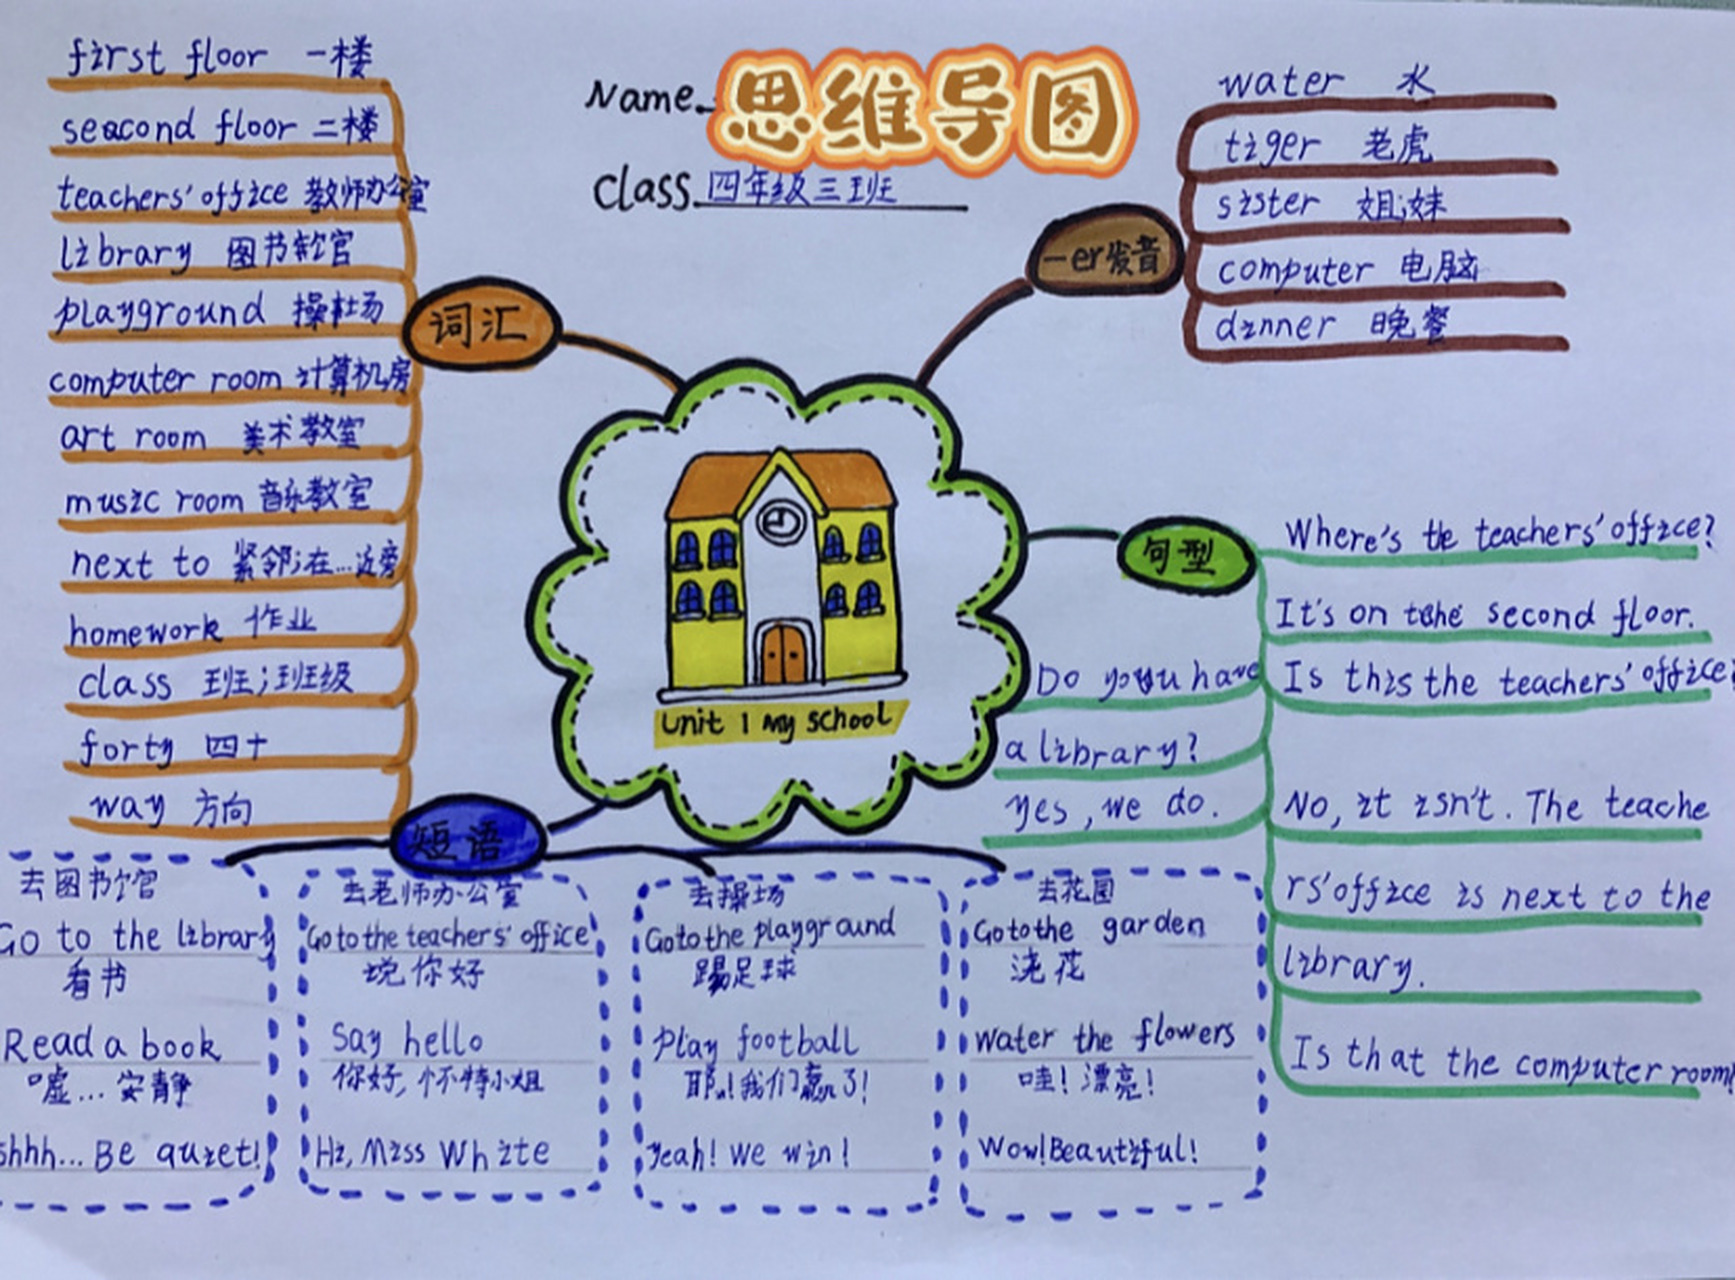 Name
思维导图
Class 四年级三班
词汇
first floor 一楼
seacond floor 二楼
teachers' office 教师办公室
library 图书馆
playground 操场
computer room 计算机房
art room 美术教室
music room 音乐教室
next to 紧邻;在...近旁
homework 作业
class 班;班级
forty 四十
way 方向
-er发音
water 水
tiger 老虎
sister 姐;妹
computer 电脑
dinner 晚餐
Unit 1 My school
句型
Where's the teachers' office?
It's on the second floor.
Is this the teachers' office?
No, it isn't. The teache
rs' office is next to the
library.
Is that the computer room?
Do you have
a library?
Yes, we do.
短语
去图书馆
Go to the library
看书
Read a book
嘘...安静
shhh... Be quiet!
去老师办公室
Go to the teachers' office
说你好
Say hello
你好,怀特小姐
Hi, Miss White
去操场
Go to the playground
踢足球
Play football
耶!我们赢了!
Yeah! We win!
去花园
Go to the garden
浇花
Water the flowers
哇!漂亮!
Wow! Beautiful!